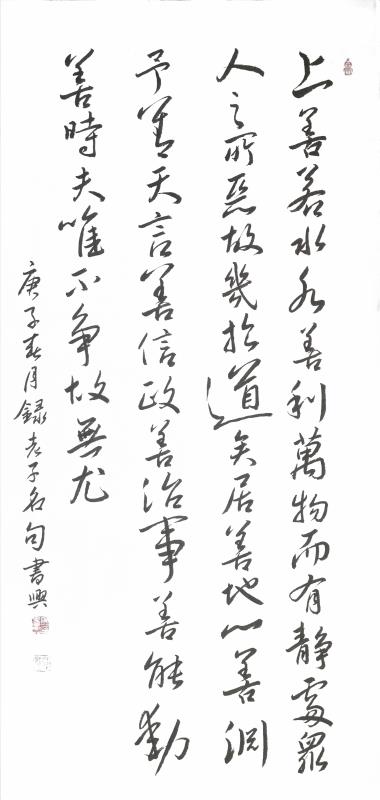 上善若水水善利萬物而有静處眾
人之所惡故幾於道矣居善地心善淵
予善天言善信政善治事善能動
善時夫唯不争故無尤
庚子春月録老子名句書興